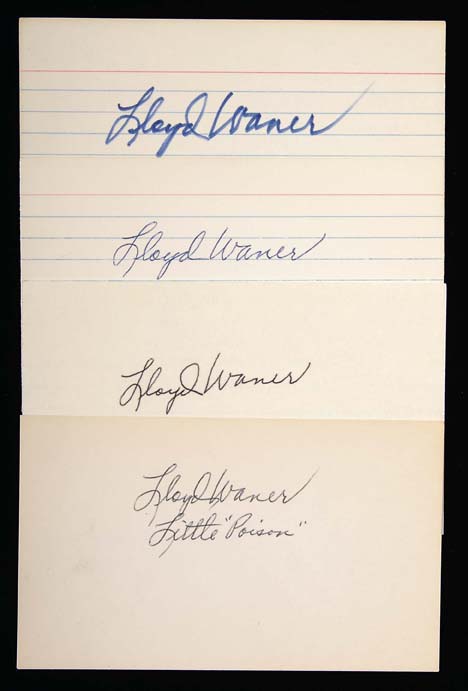 Lloyd Waner
Lloyd Waner
Lloyd Waner
Lloyd Waner
Little "Poison"